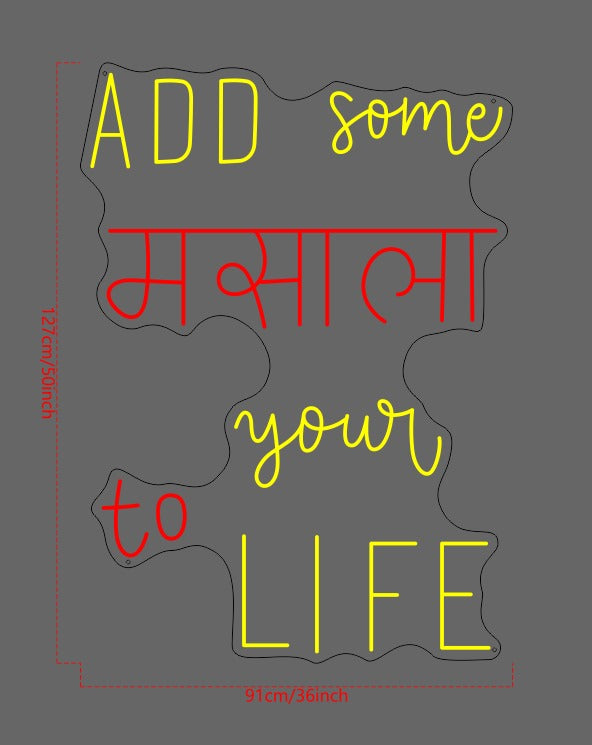 ADD some
मसाला
your
to
LIFE
127cm/50inch
91cm/36inch